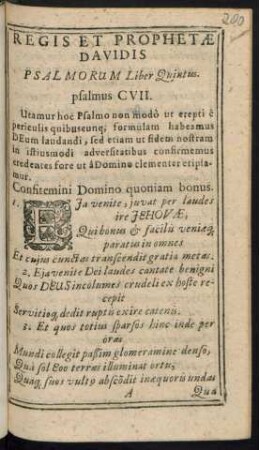 200
REGIS ET PROPHETÆ
DAVIDIS
PSALMORUM Liber Quintus.
psalmus CVII.
Utamur hoc Psalmo non modò ut erepti è
periculis quibuscunq; formulam habeamus
DEum laudandi, sed etiam ut fidem nostram
in istiusmodi adversitatibus confirmemus
credentes fore ut à Domino clementer eripia-
mur.
Confitemini Domino quoniam bonus.
1. EJa venite, juvat per laudes
ire JEHOVÆ,
Qui bonus & facilis veniæq́,
paratus in omnes
Et cujus cunctas transcendit gratia metas.
2. Eja venite Dei laudes cantate benigni
Quos DEUS incolumes crudeli ex hoste re-
cepit
Servitioq́, dedit ruptis exire catenis.
3. Et quos totius sparsos hinc inde per
oras
Mundi collegit passim glomeramine denso,
Quà sol Eoo terras illuminat ortu,
Quaq́, suos vultꝰ abscōdit inæquoris undas
A Qua